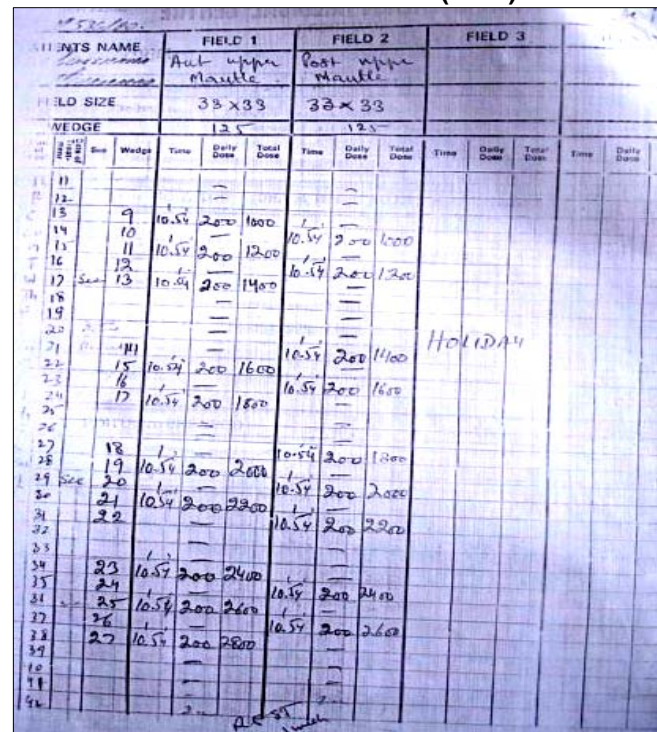 PATIENTS NAME FIELD 1 FIELD 2 FIELD 3
Ant upper Post upper
Mantle Mantle
FIELD SIZE 33 x 33 33 x 33
WEDGE 125 125
Wedge Time Daily Dose Total Dose Time Daily Dose Total Dose Time Daily Dose Total Dose Time Daily Dose
11 — —
12 — —
13 9 10.54 200 1000 —
14 10 — 10.54 200 1000
15 11 10.54 200 1200 —
16 12 — 10.54 200 1200
17 See 13 10.54 200 1400 —
18 — —
19 — —
20 — — HOLIDAY
21 14 — 10.54 200 1400
22 15 10.54 200 1600 —
23 16 — 10.54 200 1600
24 17 10.54 200 1800 —
25 — —
26 — —
27 18 — 10.54 200 1800
28 19 10.54 200 2000 —
29 See 20 — 10.54 200 2000
30 21 10.54 200 2200 —
31 22 — 10.54 200 2200
32 — —
33 — —
34 23 10.54 200 2400 —
35 24 — 10.54 200 2400
25 10.54 200 2600 —
37 26 — 10.54 200 2600
38 27 10.54 200 2800 —
39 — —
— —
41 — —
42
REST